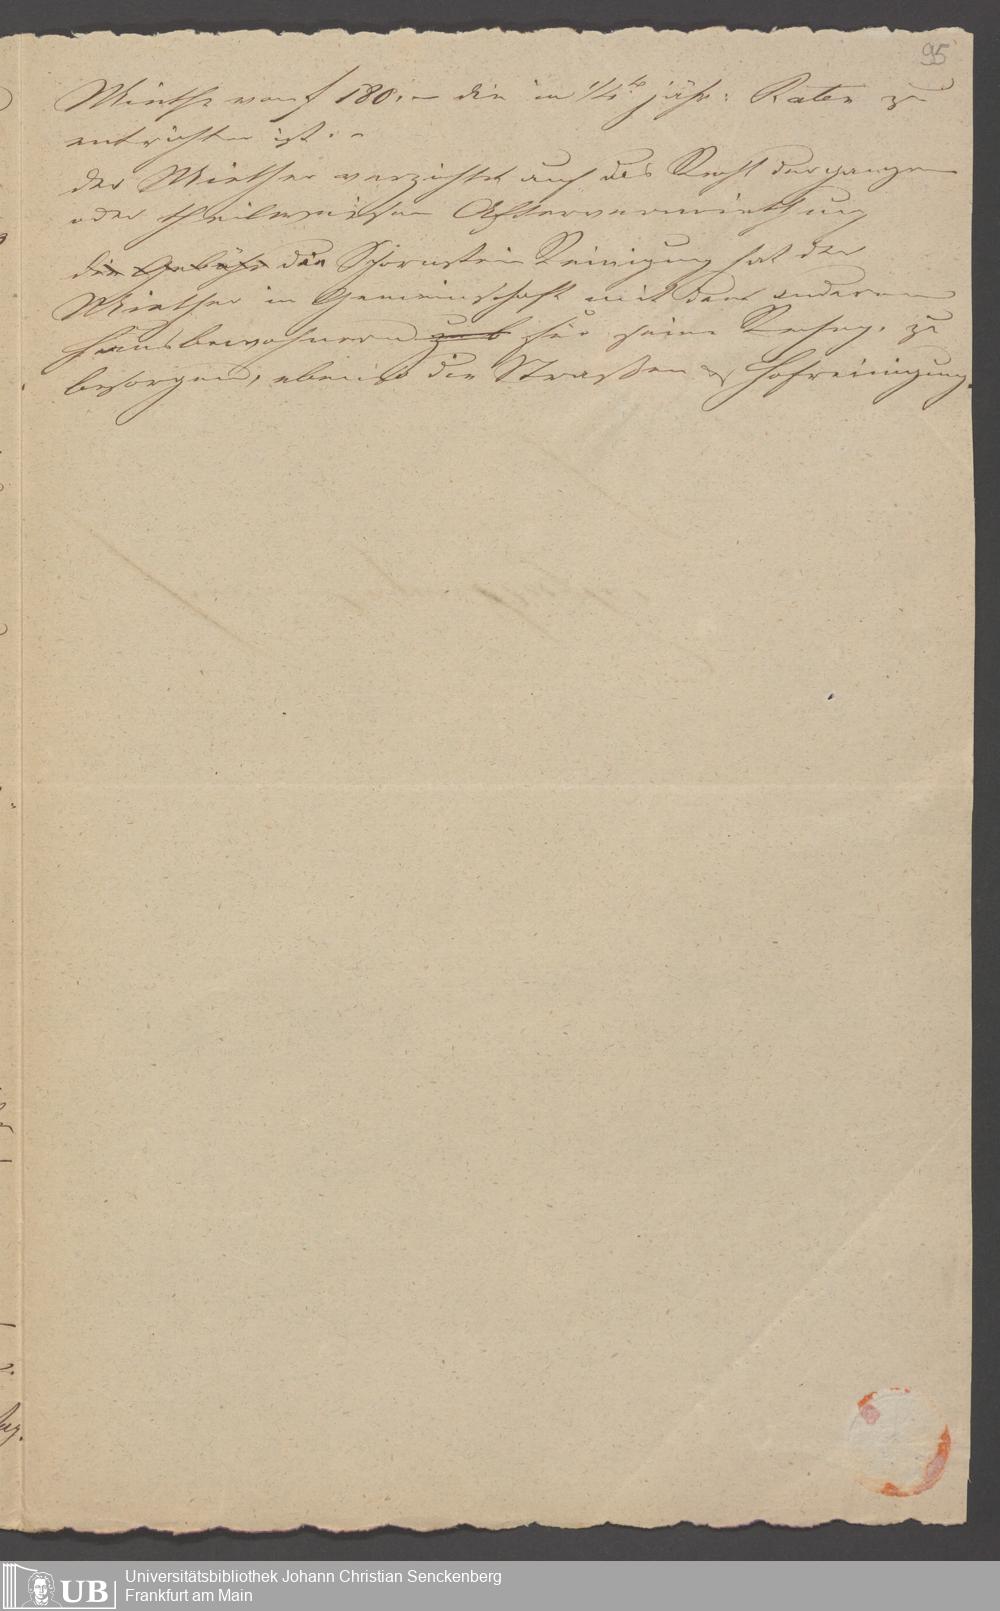 95
Miethe von f 180.– die in 1/4te jähr: Raten zu
entrichten ist. –
der Miether verzichtet auf das Recht der ganzen
oder theilweisen Aftervermiethung
die Gebühr die Schornstein Reinigung hat der
Miether in Gemeinschaft mit den anderen
Hausbewohnern für seine Rechng. zu
besorgen, ebenso die Straßen & Hofreinigung.
UB
Universitätsbibliothek Johann Christian Senckenberg
Frankfurt am Main